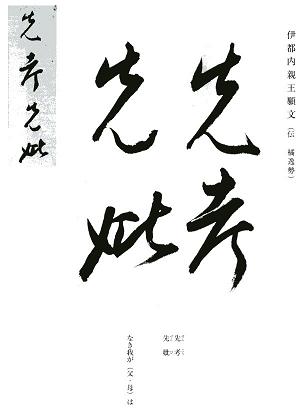 伊都内親王願文（伝 橘逸勢）
先考
先妣
先考先妣
先考
先妣
なき我が（父・母）は